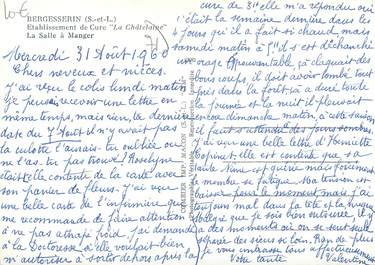 10€
BERGESSERIN (S.-et-L.)
Etablissement de Cure "La Châtelaine"
La Salle à Manger
Mercredi 31 Août 1960
Chers neveux et nièces.
J'ai reçu le colis lundi matin
je pensais recevoir une lettre en
même temps, mais rien, la dernière
date du 7 Août il n'y avait pas
la culotte l'aurais-tu oubliée ou
ne l'as-tu pas trouvé? Roselyne
était-elle contente de la carte avec
son panier de fleurs. J'ai reçu
une belle carte de l'infirmière qui
me recommande de faire attention
à ne pas attraper froid j'ai demandé
à la Doctoresse si elle voulait bien
m'autoriser à sortir depuis après la
cure de 3h elle m'a répondu oui
c'était la semaine dernière dans les
4 jours qu'il a fait si chaud, mais
samedi matin à 5h il s'est déchaîné
un orage épouvantable ça claquait des
bons coups, il doit avoir tombé tout
près dans la forêt, ça a duré toute
la journée et la nuit il pleuvait
encore dimanche matin, à cette saison
il faut s'attendre des jours sombres.
J'ai reçu une belle lettre d'Henriette
Copinet. elle est contente que sa
tante Nine soit guérie mais forcément
le monde se fatigue. Ma tension est
baissée pour le moment mais j'ai
toujours mal dans la tête et la gorge
Malgré que je sois bien entourée, il y
a des moments où on se sent seule
séparée des siens si loin. Rien de plus
je vous embrasse tous affectueusement
Votre tante Valentine